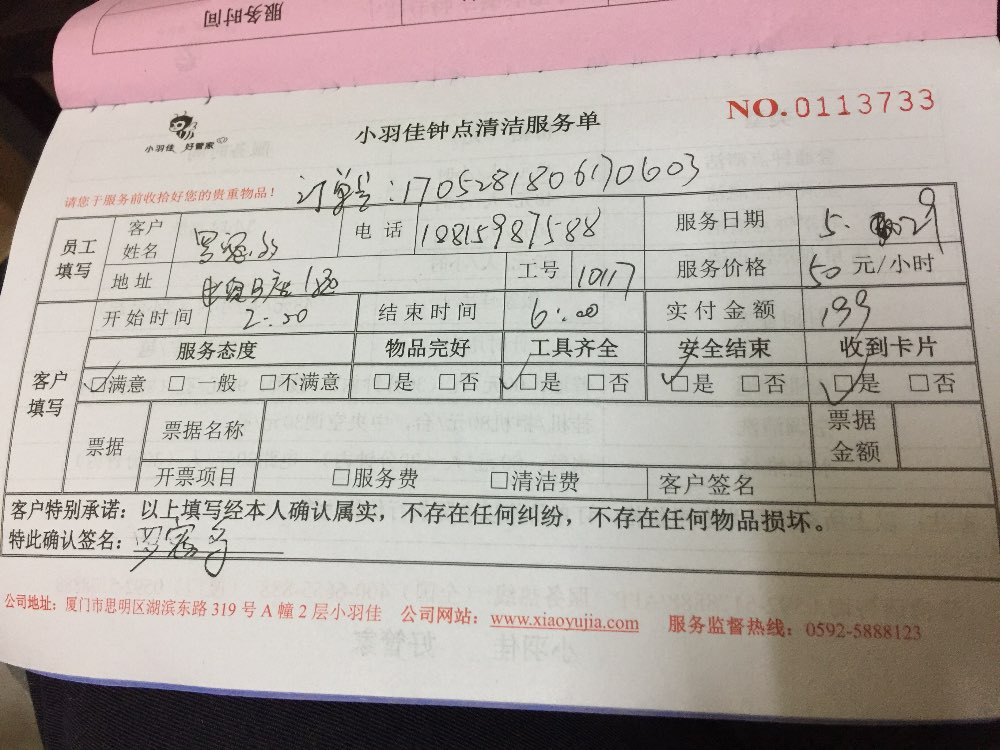 服务时间
NO.0113733
小羽佳 好管家
小羽佳钟点清洁服务单
请您于服务前收拾好您的贵重物品！
订单号：1705281806170603
员工填写 客户姓名 电话 18159871588 服务日期 5. 29
地址 工号 10117 服务价格 50 元/小时
客户填写 开始时间 2:00 结束时间 6:00 实付金额 199
服务态度 物品完好 工具齐全 安全结束 收到卡片
☑满意 □一般 □不满意 □是 □否 ☑是 □否 ☑是 □否 ☑是 □否
票据 票据名称 票据金额
开票项目 □服务费 □清洁费 客户签名
客户特别承诺：以上填写经本人确认属实，不存在任何纠纷，不存在任何物品损坏。
特此确认签名：
公司地址：厦门市思明区湖滨东路 319 号 A 幢 2 层小羽佳 公司网站：www.xiaoyujia.com 服务监督热线：0592-5888123